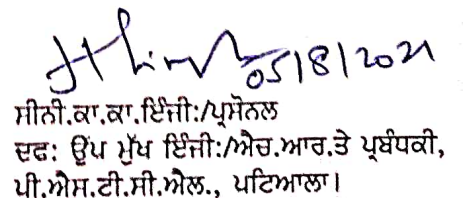 05/8/2021
ਸੀਨੀ.ਕਾ.ਕਾ.ਇੰਜੀ:/ਪ੍ਰਸੋਨਲ
ਦਫ: ਉਪ ਮੁੱਖ ਇੰਜੀ:/ਐਚ.ਆਰ.ਤੇ ਪ੍ਰਬੰਧਕੀ,
ਪੀ.ਐਸ.ਟੀ.ਸੀ.ਐਲ., ਪਟਿਆਲਾ।